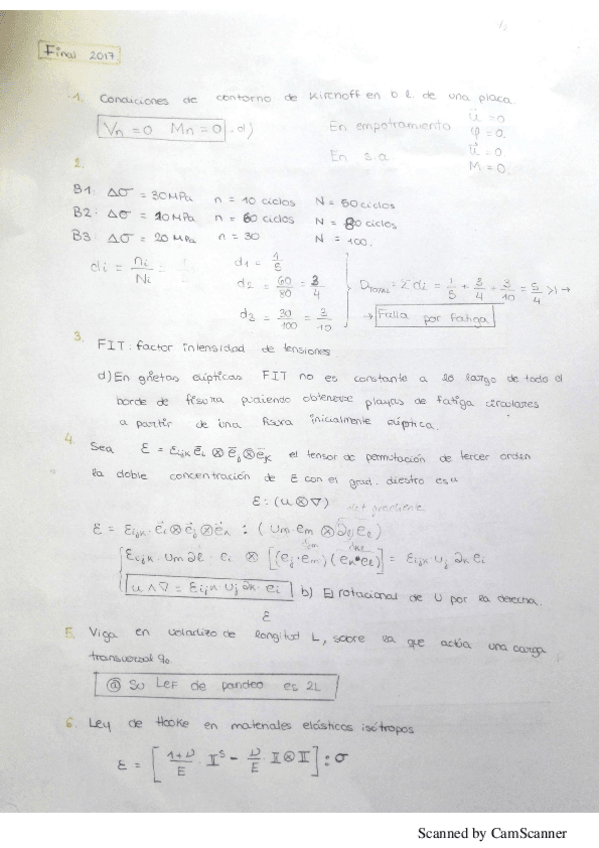 Final 2017
1. Condiciones de contorno de Kirchoff en b.l. de una placa.
Vn = 0 Mn = 0 d)
En empotramiento u = 0 φ = 0.
En s.a u = 0. M = 0.
2.
B1: Δσ = 30 MPa n = 10 ciclos N = 50 ciclos
B2: Δσ = 10 MPa n = 60 ciclos N = 80 ciclos
B3: Δσ = 20 MPa n = 30 N = 100.
di = ni/Ni
d1 = 1/5
d2 = 60/80 = 3/4
d3 = 30/100 = 3/10
DTOTAL = Σ di = 1/5 + 3/4 + 3/10 = 5/4 >1 →
→ Falla por fatiga
3.
FIT: factor intensidad de tensiones
d) En grietas elípticas FIT no es constante a lo largo de todo el
borde de fisura pudiendo obtenerse playas de fatiga circulares
a partir de una fisura inicialmente elíptica.
4.
Sea ε = εijk ēi ⊗ ēj ⊗ ēk el tensor de permutación de tercer orden
la doble concentración de ε con el grad. diestro es u
ε : (u ⊗ ∇)
ε = εijk · ēi ⊗ ēj ⊗ ēk : (um em ⊗ ∂l el)
εijk · um ∂l · ei ⊗ [(ej · em)(ek · el)] = εijk uj ∂k ei
u ∧ ∇ = εijk uj ∂k · ei b) El rotacional de U por la derecha.
ε
5. Viga en voladizo de longitud L, sobre la que actúa una carga
transversal q0
ⓐ Su Lef de pandeo es 2L
6. Ley de Hooke en materiales elásticos isótropos
ε = [ (1+ν)/E · IIˢ − ν/E · II ⊗ II ] : σ
Scanned by CamScanner